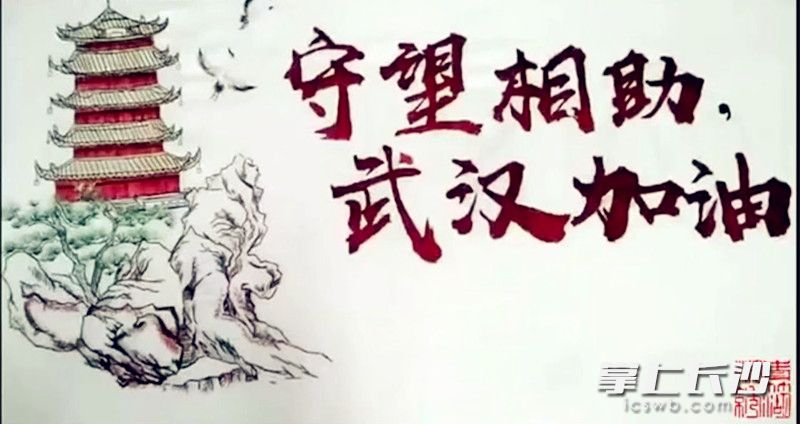 守望相助，
武汉加油
掌上长沙
icswb.com